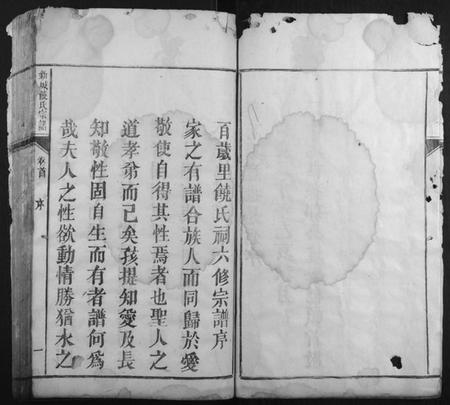 百歲里饒氏祠六修宗譜序
家之有譜合族人而同歸於愛
敬使自得其性焉者也聖人之
道孝弟而已矣孩提知愛及長
知敬性固自生而有者譜何為
哉夫人之性欲動情勝猶水之
新城饒氏宗譜
卷首
序
一